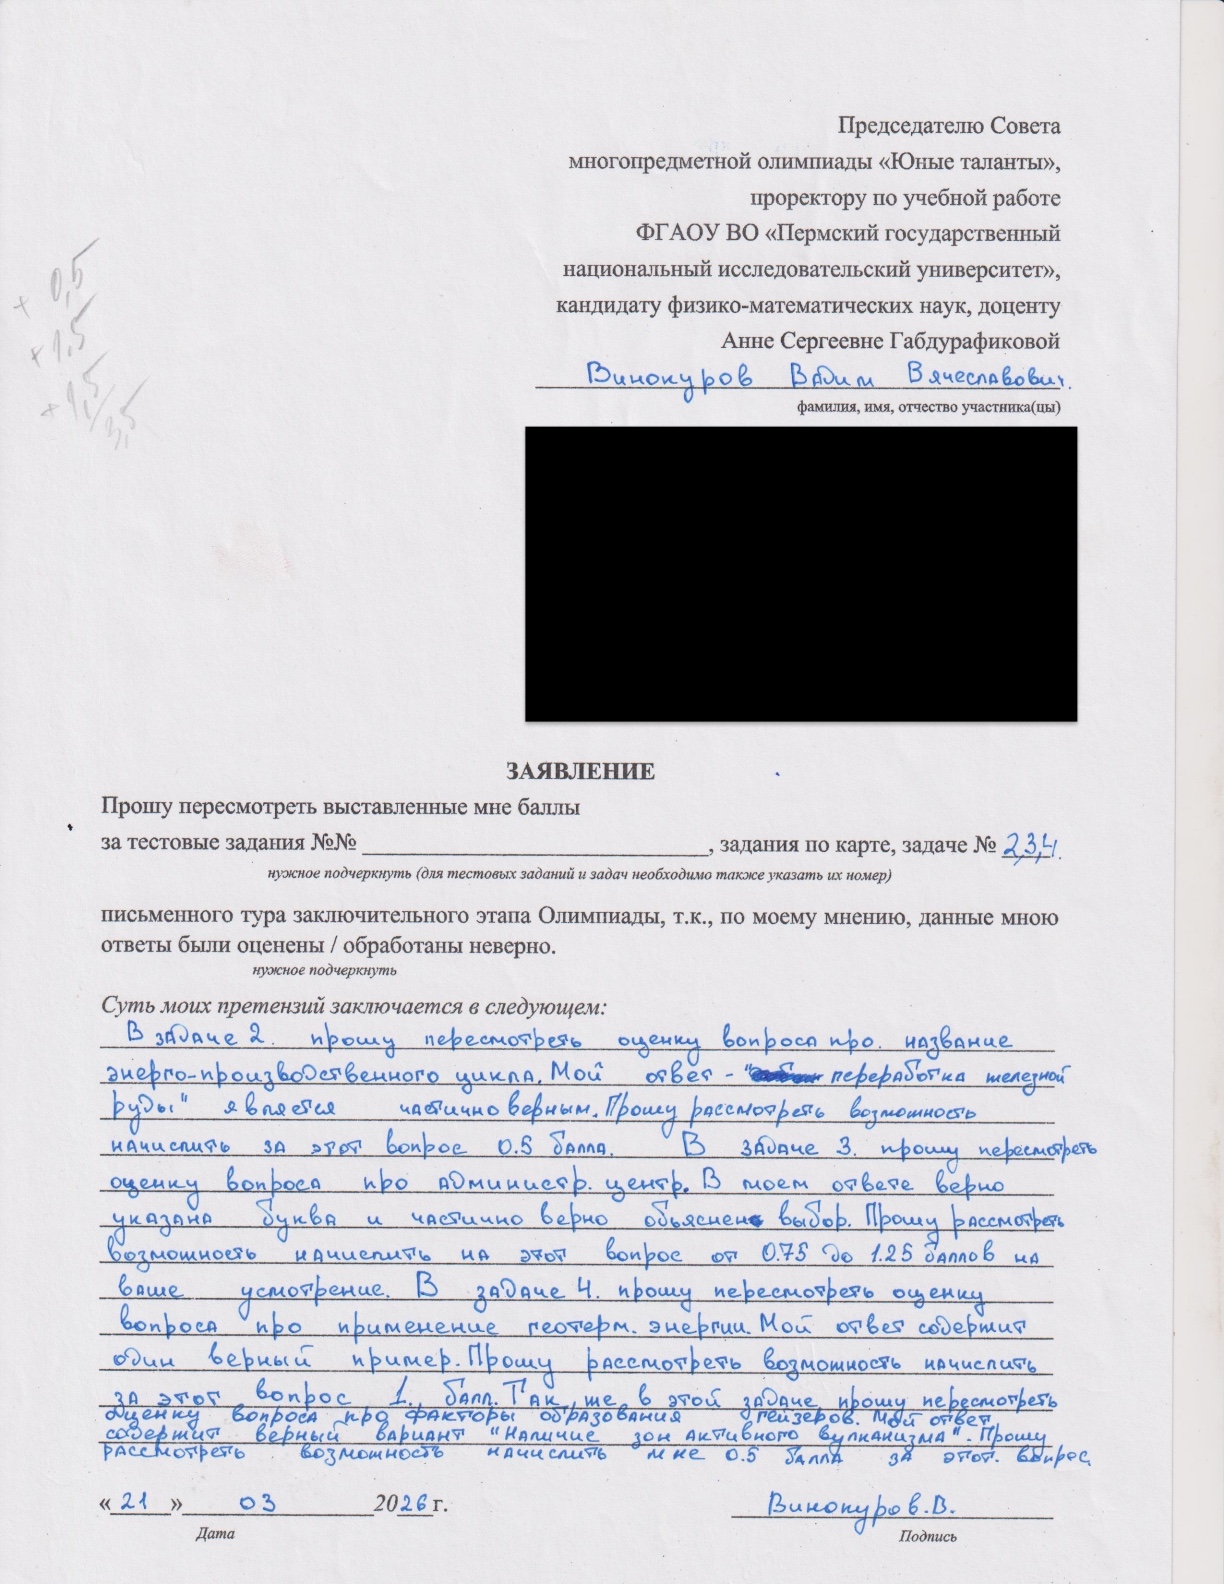 Председателю Совета
многопредметной олимпиады «Юные таланты»,
проректору по учебной работе
ФГАОУ ВО «Пермский государственный
национальный исследовательский университет»,
кандидату физико-математических наук, доценту
Анне Сергеевне Габдурафиковой
Винокуров Вадим Вячеславович.
фамилия, имя, отчество участника(цы)
+ 0,5
+ 1,5
+ 1,5
3,5
ЗАЯВЛЕНИЕ
Прошу пересмотреть выставленные мне баллы
за тестовые задания №№ ____, задания по карте, задаче № 2,3,4.
нужное подчеркнуть (для тестовых заданий и задач необходимо также указать их номер)
письменного тура заключительного этапа Олимпиады, т.к., по моему мнению, данные мною
ответы были оценены / обработаны неверно.
нужное подчеркнуть
Суть моих претензий заключается в следующем:
В задаче 2. прошу пересмотреть оценку вопроса про. название
энерго-производственного цикла. Мой ответ - " переработка железной
руды" является частично верным. Прошу рассмотреть возможность
начислить за этот вопрос 0.5 балла. В задаче 3. прошу пересмотреть
оценку вопроса про администр. центр. В моем ответе верно
указана буква и частично верно объяснен выбор. Прошу рассмотреть
возможность начислить на этот вопрос от 0.75 до 1.25 баллов на
ваше усмотрение. В задаче 4. прошу пересмотреть оценку
вопроса про применение геотерм. энергии. Мой ответ содержит
один верный пример. Прошу рассмотреть возможность начислить
за этот вопрос 1. балл. Так же в этой задаче прошу пересмотреть
оценку вопроса про факторы образования гейзеров. Мой ответ
содержит верный вариант "Наличие зон активного вулканизма". Прошу
рассмотреть возможность начислить мне 0.5 балла за этот. вопрос.
«21» 03 2026 г.
Винокуров.В.
Дата
Подпись